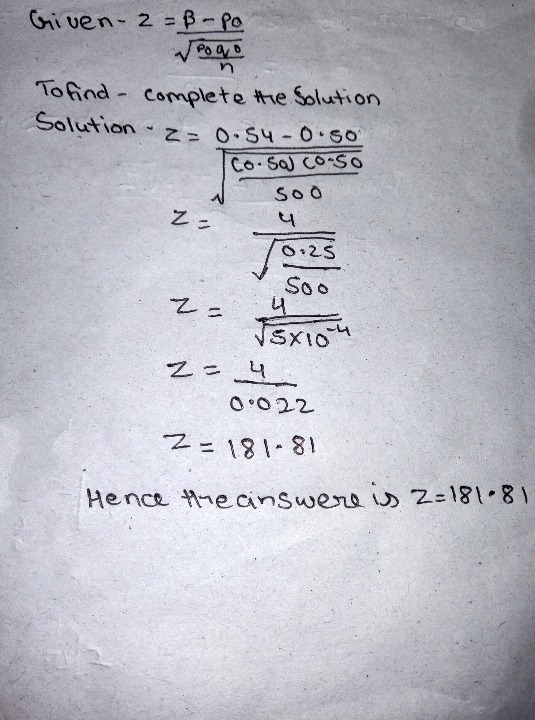 Given - z = β - Po
√ Po qo
n
To find - complete the Solution
Solution - z = 0.54 - 0.50
√ (0.50) (0.50
500
z = 4
√ 0.25
500
z = 4
√5×10⁻⁴
z = 4
0.022
z = 181.81
Hence the answere is z=181.81